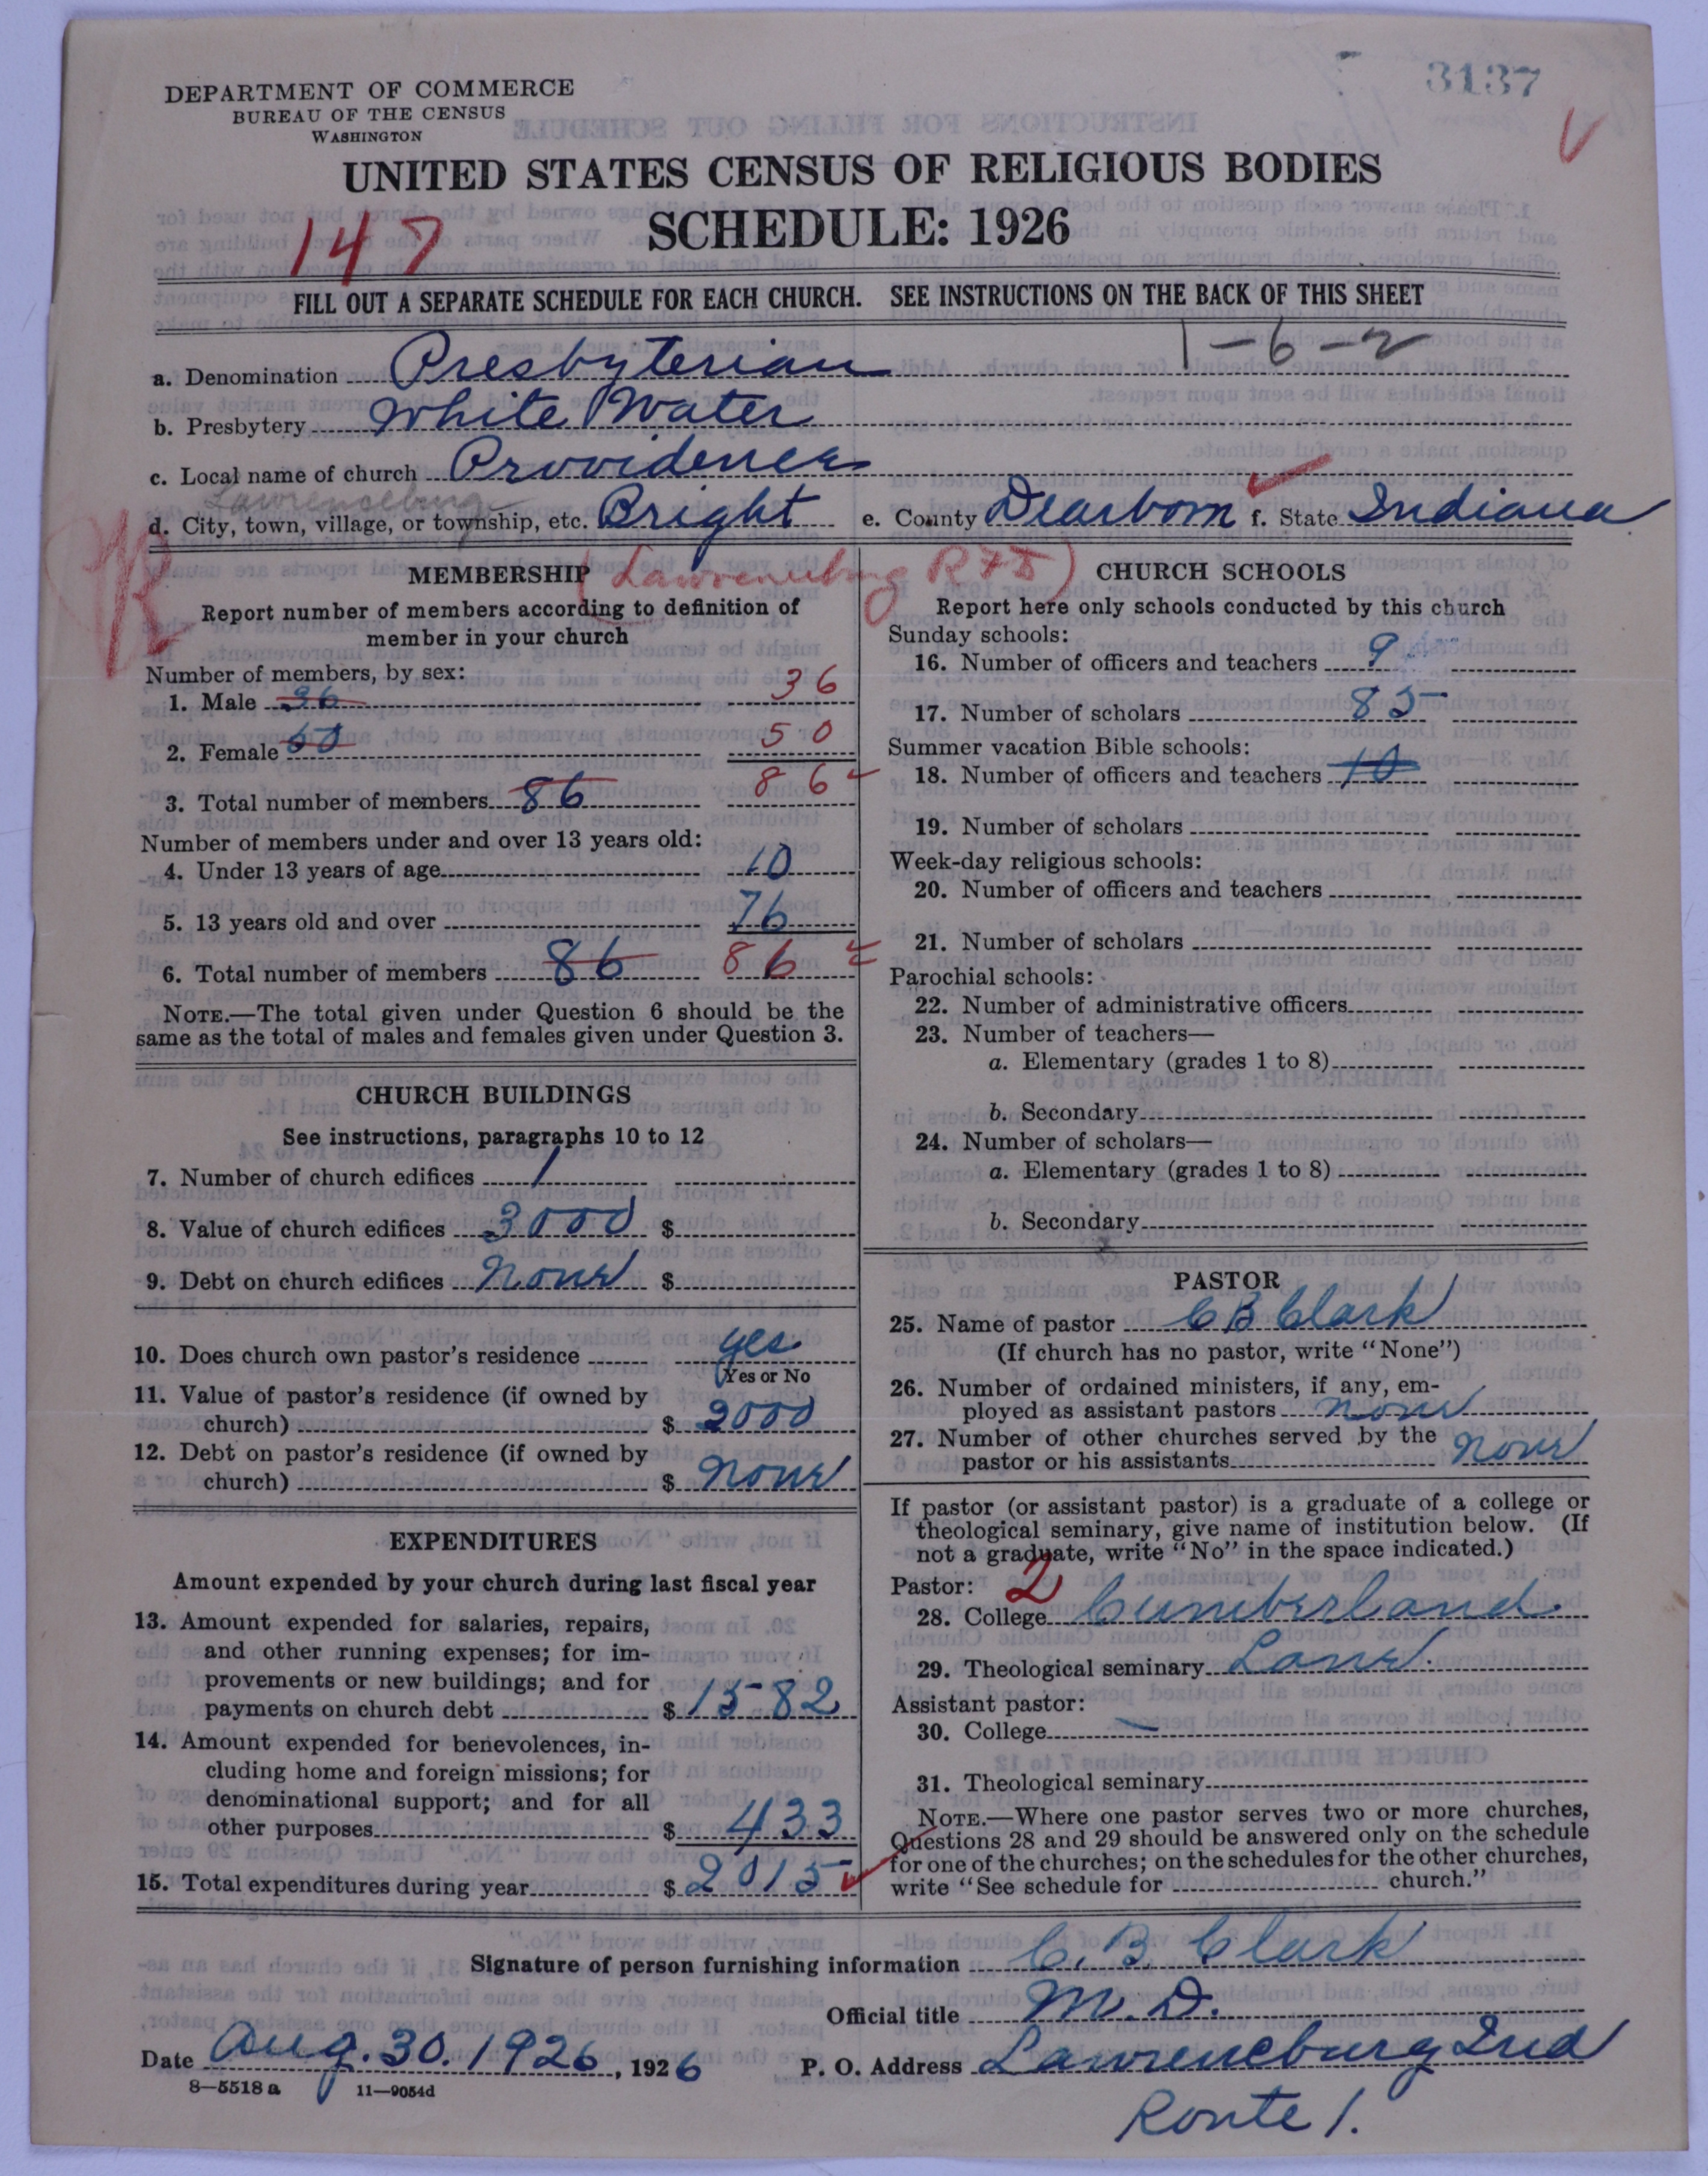 3137
DEPARTMENT OF COMMERCE
BUREAU OF THE CENSUS
WASHINGTON
UNITED STATES CENSUS OF RELIGIOUS BODIES
SCHEDULE: 1926
147
FILL OUT A SEPARATE SCHEDULE FOR EACH CHURCH. SEE INSTRUCTIONS ON THE BACK OF THIS SHEET
1-6-2
a. Denomination Presbyterian
b. Presbytery White Water
c. Local name of church Providence
Lawrenceburg
d. City, town, village, or township, etc. Bright e. County Dearborn f. State Indiana
(Lawrenceburg R#5)
MEMBERSHIP
Report number of members according to definition of
member in your church
Number of members, by sex:
1. Male 36 36
2. Female 50 50
3. Total number of members 86 86
Number of members under and over 13 years old:
4. Under 13 years of age 10
5. 13 years old and over 76
6. Total number of members 86 86
NOTE.—The total given under Question 6 should be the
same as the total of males and females given under Question 3.
CHURCH BUILDINGS
See instructions, paragraphs 10 to 12
7. Number of church edifices 1
8. Value of church edifices 3000 $
9. Debt on church edifices None $
10. Does church own pastor's residence yes
Yes or No
11. Value of pastor's residence (if owned by
church) $ 2000
12. Debt on pastor's residence (if owned by
church) $ None
EXPENDITURES
Amount expended by your church during last fiscal year
13. Amount expended for salaries, repairs,
and other running expenses; for im-
provements or new buildings; and for
payments on church debt $ 1582
14. Amount expended for benevolences, in-
cluding home and foreign missions; for
denominational support; and for all
other purposes $ 433
15. Total expenditures during year $ 2015
CHURCH SCHOOLS
Report here only schools conducted by this church
Sunday schools:
16. Number of officers and teachers 9
17. Number of scholars 85
Summer vacation Bible schools:
18. Number of officers and teachers 10
19. Number of scholars
Week-day religious schools:
20. Number of officers and teachers
21. Number of scholars
Parochial schools:
22. Number of administrative officers
23. Number of teachers—
a. Elementary (grades 1 to 8)
b. Secondary
24. Number of scholars—
a. Elementary (grades 1 to 8)
b. Secondary
PASTOR
25. Name of pastor C B Clark
(If church has no pastor, write "None")
26. Number of ordained ministers, if any, em-
ployed as assistant pastors none
27. Number of other churches served by the
pastor or his assistants None
If pastor (or assistant pastor) is a graduate of a college or
theological seminary, give name of institution below. (If
not a graduate, write "No" in the space indicated.)
Pastor: 2
28. College Cumberland.
29. Theological seminary Lane.
Assistant pastor:
30. College —
31. Theological seminary
NOTE.—Where one pastor serves two or more churches,
Questions 28 and 29 should be answered only on the schedule
for one of the churches; on the schedules for the other churches,
write "See schedule for church."
Signature of person furnishing information C. B. Clark
Official title M. D.
Date Aug. 30. 1926, 1926 P. O. Address Lawrenceburg Ind
Route 1.
8—5518 a 11—9054d